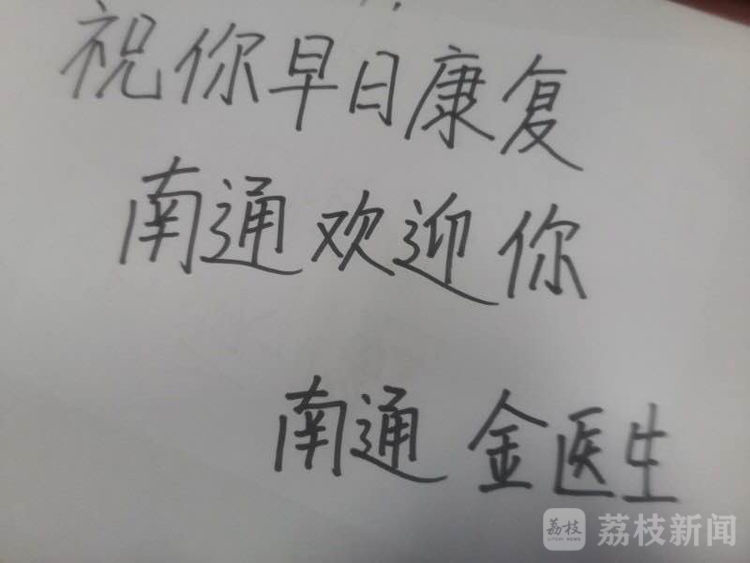 祝你早日康复
南通欢迎你
南通 金医生
荔枝 荔枝新闻
LITCHI NEWS